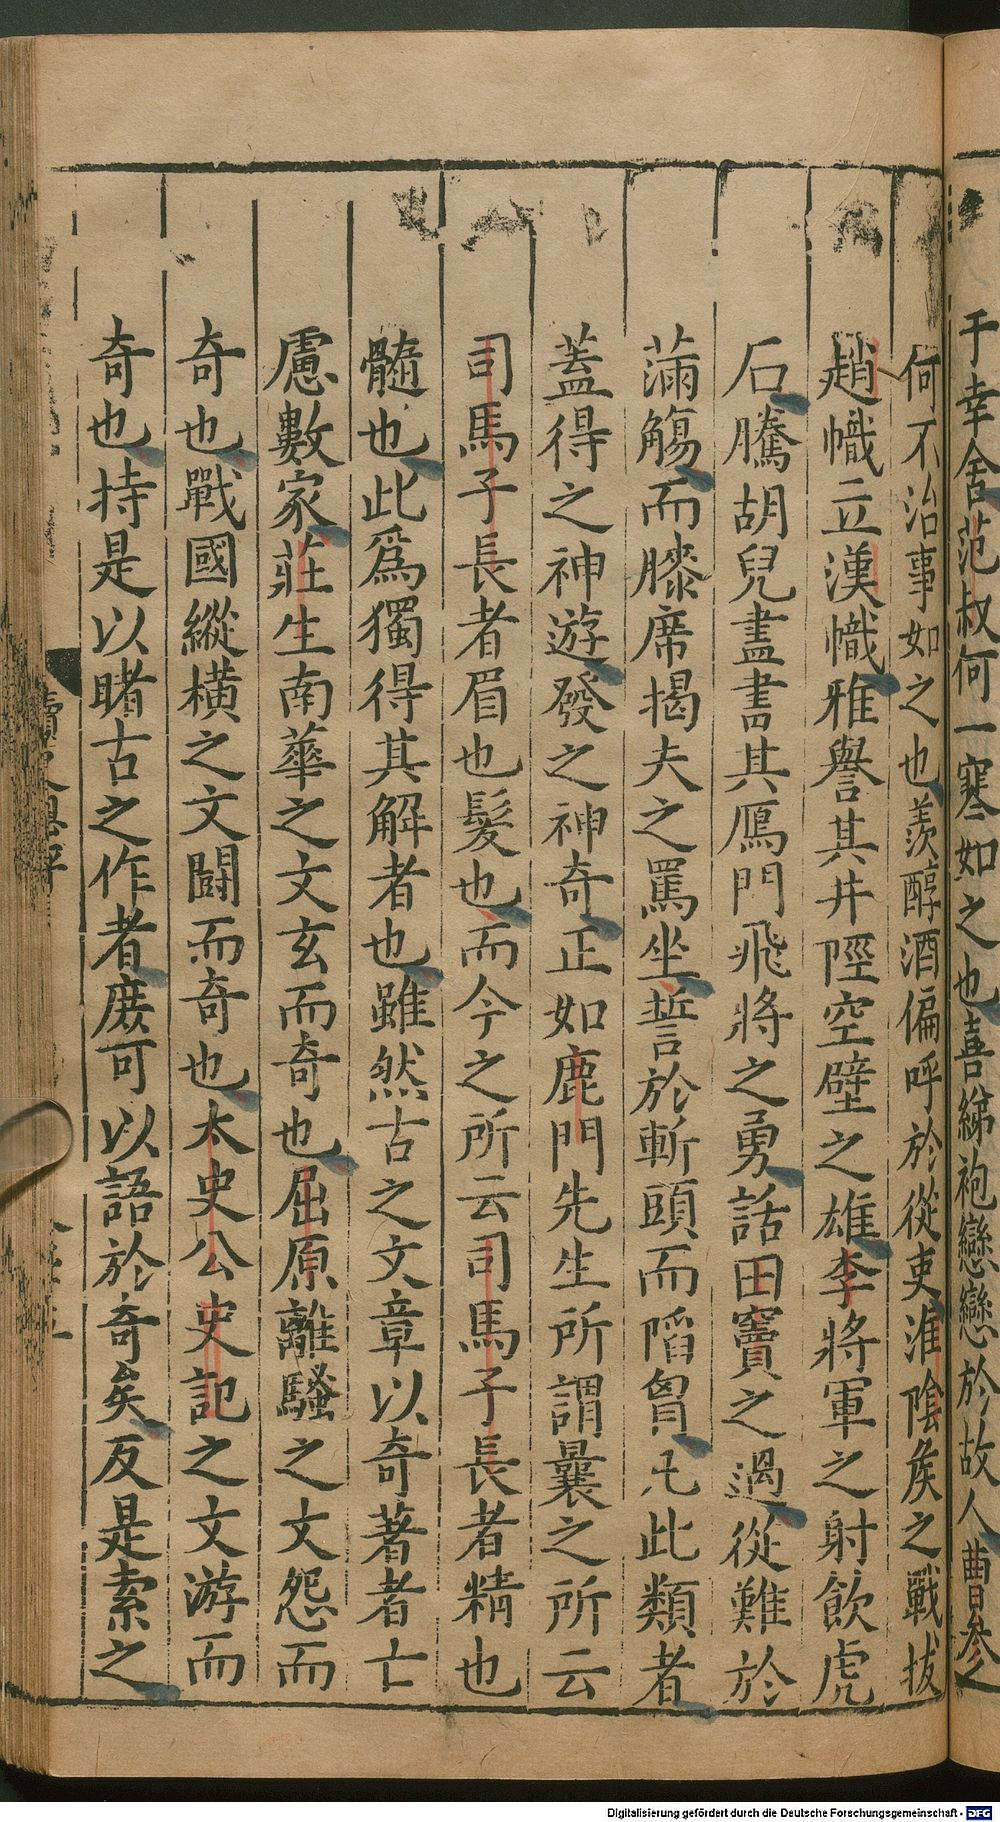 于幸舍范叔何一寒如之也喜綈袍戀戀於故人曹參
何不治事如之也羨醇酒偏呼於從吏淮陰矦之戰拔
趙幟立漢幟雅譽其井陘空壁之雄李將軍之射飲虎
石騰胡兒盡畵其鴈門飛將之勇話田竇之過從難於
滿觴而膝席揭夫之罵坐誓於斬頭而陷胷凡此類者
蓋得之神遊發之神奇正如鹿門先生所謂曩之所云
司馬子長者眉也髮也而今之所云司馬子長者精也
髓也此爲獨得其解者也雖然古之文章以奇著者亡
慮數家莊生南華之文玄而奇也屈原離騷之文怨而
奇也戰國縱橫之文闘而奇也太史公史記之文游而
奇也持是以睹古之作者庻可以語於奇矣反是索之
Digitalisierung gefördert durch die Deutsche Forschungsgemeinschaft - DFG